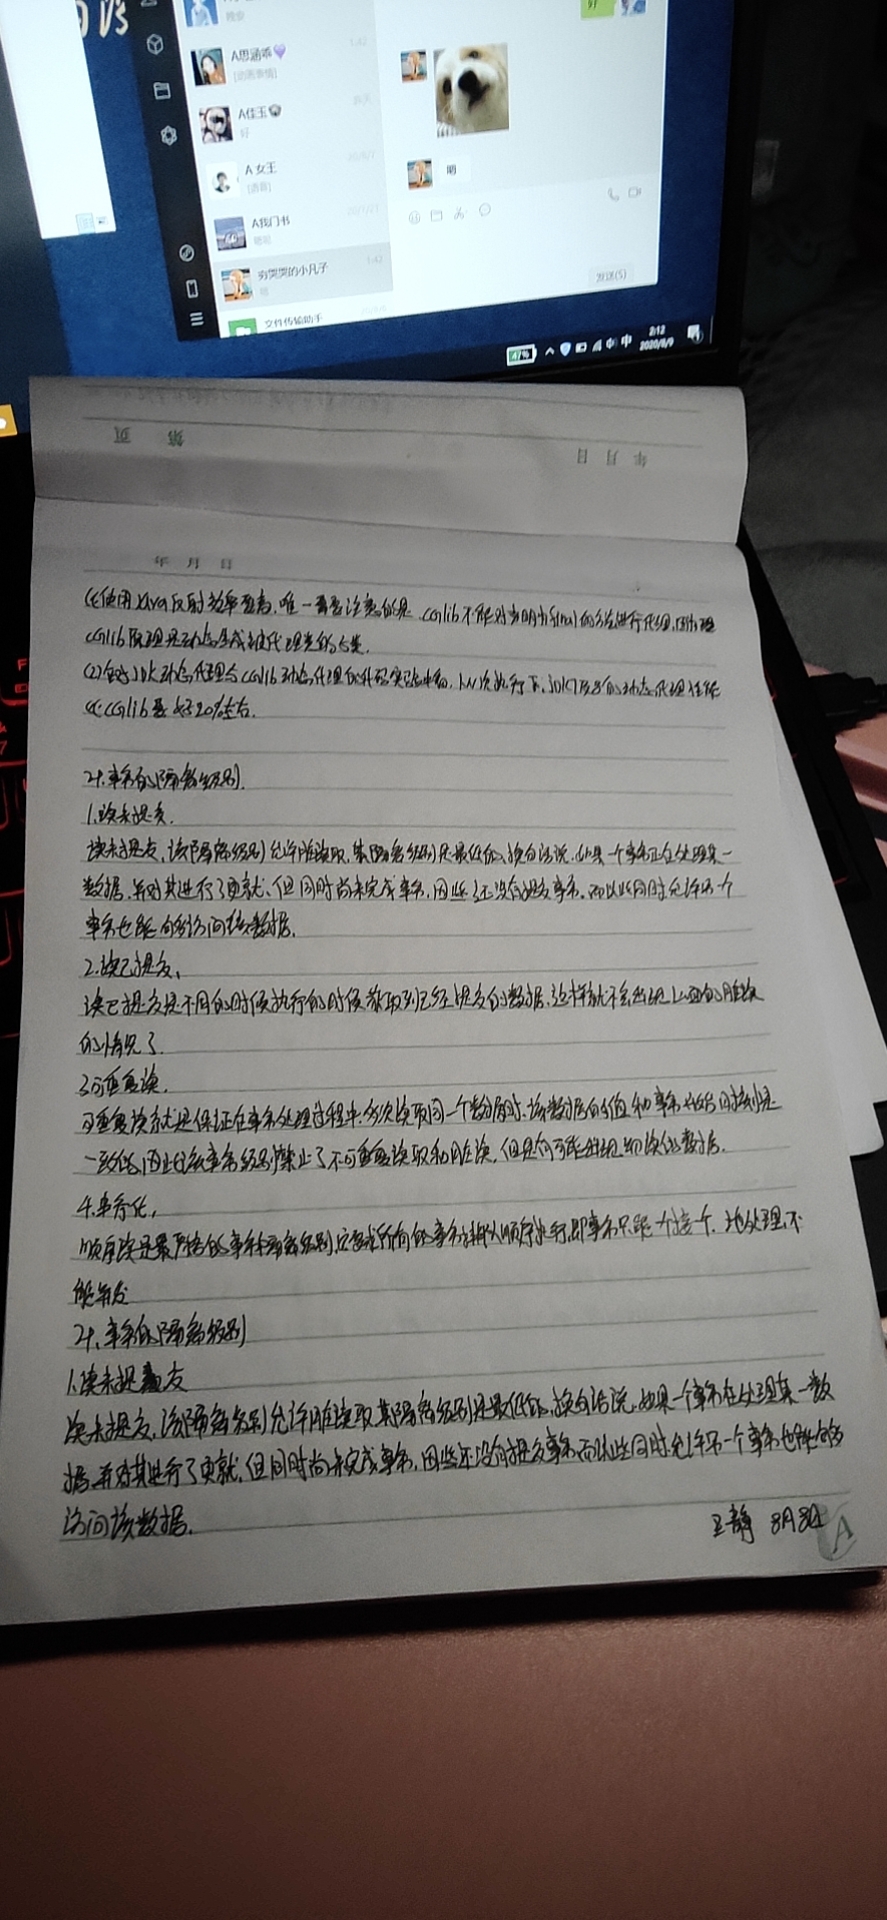 A思涵乖
1:42
[动画表情]
A佳玉
昨天
好
A 女王
[语音]
A我门书
嗯嗯
穷哭哭的小凡子
1:42
嗯
文件传输助手
好
嗯
发送(S)
47%
中
2:12
2020/8/9
第 页
年 月 日
年 月 日
使用Java反射效率更高,唯一需要注意的是,cglib不能对声明为final的方法进行代理,因为
cglib原理是动态生成被代理类的子类.
(2)在对JDK动态代理与cglib动态代理的代码实验中,1W次执行下,JDK7及8的动态代理性能
比cglib要好20%左右.
24.事务的隔离级别.
1.读未提交.
读未提交,该隔离级别允许脏读取,其隔离级别是最低的,换句话说,如果一个事务正在处理某一
数据,并对其进行了更新,但同时尚未完成事务,因此还没有提交事务,而以此同时,允许另一个
事务也能够访问该数据.
2.读已提交,
读已提交是不同的时候执行的时候获取到已经提交的数据,这样就不会出现上面的脏读
的情况了.
3.可重复读.
可重复读就是保证在事务处理过程中,多次读取同一个数据时,该数据的值和事务开始时刻是
一致的,因此该事务级别禁止了不可重复读取和脏读,但是有可能出现幻读的数据.
4.串行化,
顺序读是最严格的事务隔离级别,它要求所有的事务排队顺序执行,即事务只能一个接一个地处理,不
能并发
24.事务的隔离级别
1.读未提交
读未提交,该隔离级别允许脏读取,其隔离级别是最低的,换句话说,如果一个事务在处理某一数
据,并对其进行了更新,但同时尚未完成事务,因此还没有提交事务,而以此同时,允许另一个事务也能够
访问该数据.
王静 8月8日
A